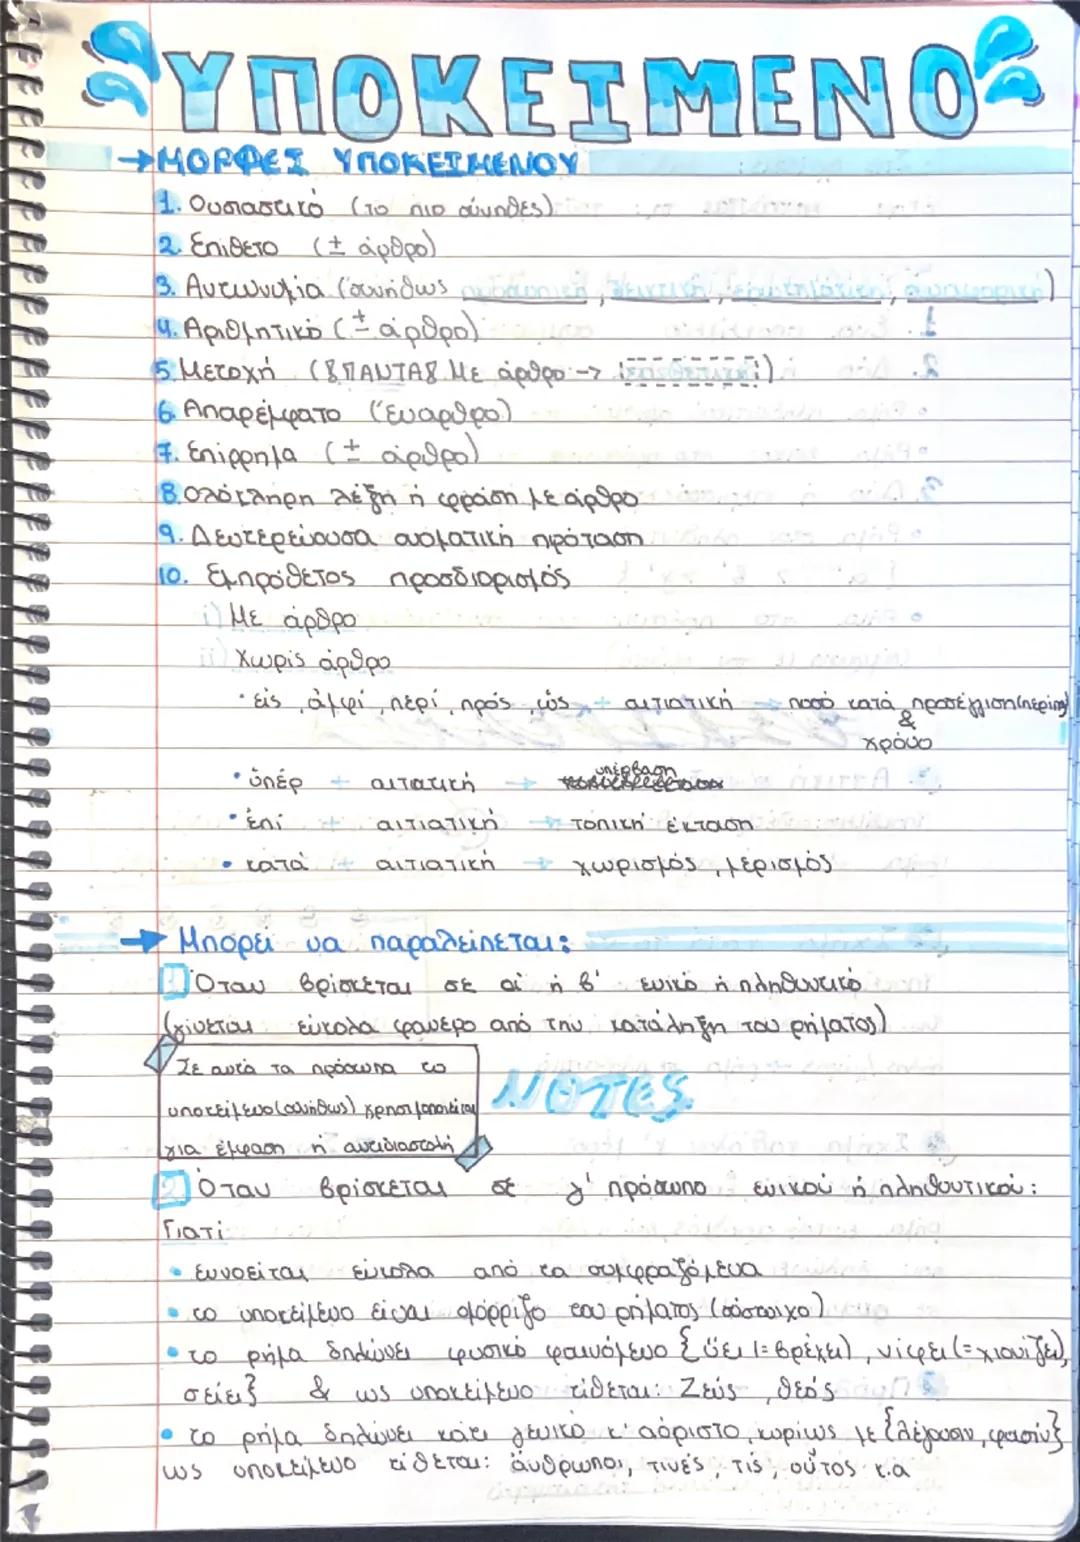 ΥΠΟΚΕΙΜΕΝΟ
→ΜΟΡΦΕΣ ΥΠΟΚΕΙΜΕΝΟΥ
1. Ουσιαστικό (το πιο σύνηθες)
2. Επίθετο (± άρθρο)
3. Αντωνυμία (συνήθως προσωπική, δεικτική, αναφορική)
4. Αριθμητικό (± άρθρο)
5. Μετοχή (ΠΑΝΤΑ ΜΕ άρθρο →)
6. Απαρέμφατο (Έναρθρο)
7. Επίρρημα (± άρθρο)
8. Ολόκληρη λέξη ή φράση με άρθρο
9. Δευτερεύουσα ονοματική πρόταση
10. Εμπρόθετος προσδιορισμός
i) Με άρθρο
ii) Χωρίς άρθρο
• εἰς, ἀμφί, περί, πρός, ὡς + αιτιατική → ποσό κατά προσέγγιση (περίπου)
&
χρόνο
• ὑπέρ + αιτατική → υπέρβαση
• ἐπί + αιτιατική → τοπική έκταση
• κατά + αιτιατική → χωρισμός, μερισμός
→ Μπορεί να παραλείπεται:
1 Όταν βρίσκεται σε α' ή β' ενικό ή πληθυντικό
(γίνεται εύκολα φανερό από την κατάληξη του ρήματος)
Σε αυτά τα πρόσωπα το
υποκείμενο (συνήθως) χρησιμοποιείται
για έμφαση ή αντιδιαστολή
NOTES
2 Όταν βρίσκεται σε γ' πρόσωπο ενικού ή πληθυντικού:
Γιατί
• εννοείται εύκολα από τα συμφραζόμενα
• το υποκείμενο είναι ομόρριζο του ρήματος (σύστοιχο)
• το ρήμα δηλώνει φυσικό φαινόμενο {ὕει (=βρέχει), νίφει (=χιονίζει),
σείει} & ως υποκείμενο τίθεται: Ζεύς, θεός
• το ρήμα δηλώνει κάτι γενικό κ' αόριστο, κυρίως με {λέγουσιν, φασίν}
ως υποκείμενο τίθεται: ἄνθρωποι, τινές, τίς, οὗτος κ.α